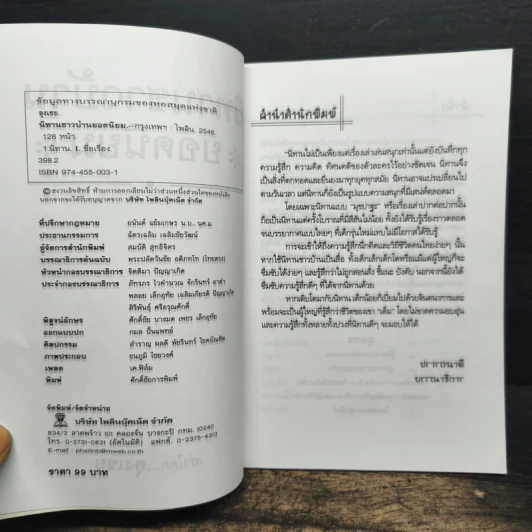 ข้อมูลทางบรรณานุกรมของหอสมุดแห่งชาติ
ลุงเชย.
นิทานชาวบ้านยอดนิยม.--กรุงเทพฯ : ไพลิน, 2546
128 หน้า
1.นิทาน. I. ชื่อเรื่อง.
398.2
ISBN 974-455-003-1
© สงวนลิขสิทธิ์ ห้ามการลอกเลียนไม่ว่าส่วนหนึ่งส่วนใดของหนังสือ
นอกจากจะได้รับอนุญาตจาก บริษัท ไพลินบุ๊คเน็ต จำกัด
ที่ปรึกษากฎหมาย อนันต์ แย้มเกษร น.บ., นศ.ม.
ประธานกรรมการ ฉัตรเฉลิม เฉลิมชัยวัฒน์
ผู้จัดการสำนักพิมพ์ สมบัติ สุทธิจิตร
บรรณาธิการต้นฉบับ
หัวหน้ากองบรรณาธิการ จิตติมา ปัญญาเกิด
ประจำกองบรรณาธิการ ภัทรภร
พิสูจน์อักษร
ออกแบบปก กมล ปิ่นแพทย์
ศิลปกรรม สำราญ ผลดี
ภาพประกอบ ธนภูมิ โชยวงศ์
เพลต เค.ฟิล์ม
พิมพ์ ศักดิ์ชัยการพิมพ์
จัดพิมพ์/จัดจำหน่าย
บริษัท ไพลินบุ๊คเน็ต จำกัด
834/2 ลาดพร้าว 101 คลองจั่น บางกะปิ กทม. 10240
ราคา 99 บาท
คำนำสำนักพิมพ์
"นิทานไม่เป็นเพียงแต่เรื่องเล่าเล่นสนุกเท่านั้นแต่ยังบันทึกทุก
ความรู้สึก ความคิด ทัศนคติของตัวละครไว้อย่างชัดเจน นิทานจึง
เป็นสิ่งที่ตกทอดและยืนยงมาทุกยุคทุกสมัย นิทานอาจแปรเปลี่ยนไป
ตามวันเวลา แต่นิทานก็ยังเป็นรูปแบบความสนุกที่มีเสน่ห์ตลอดมา
โดยเฉพาะนิทานแบบ "มุขปาฐะ" หรือเรื่องเล่าปากต่อปากนั้น
ถือเป็นนิทานแต่ครั้งโบราณที่มีสีสันไม่น้อย ทั้งยังได้รับรู้เรื่องราวตลอด
จนบรรยากาศแบบไทยๆ ที่เด็กรุ่นใหม่แทบไม่มีโอกาสได้รับรู้
การจะเข้าให้ถึงความรู้สึกนึกคิดและวิถีชีวิตคนไทยง่ายๆ นั้น
หากใช้นิทานชาวบ้านเป็นสื่อ ทั้งเด็กเล็กเด็กโตหรือแม้แต่ผู้ใหญ่ก็จะ
ซึมซับได้ง่ายๆ และรู้สึกว่าไม่ถูกสอนสั่ง ชี้แนะ บังคับ นอกจากนี้ยังได้
ซึมซับความรู้สึกดีๆ ที่ได้จากนิทานด้วย
หากเติบโตมากับนิทาน เด็กน้อยก็เปี่ยมไปด้วยจินตนาการและ
พร้อมจะเป็นผู้ใหญ่ที่รู้สึกว่าชีวิตของเขา "เต็ม" โดยไม่ขาดความอบอุ่น
และความรู้สึกทั้งหลายทั้งปวงที่นิทานดีๆ จะมอบให้ได้
ปรารถนาดี
บรรณาธิการ